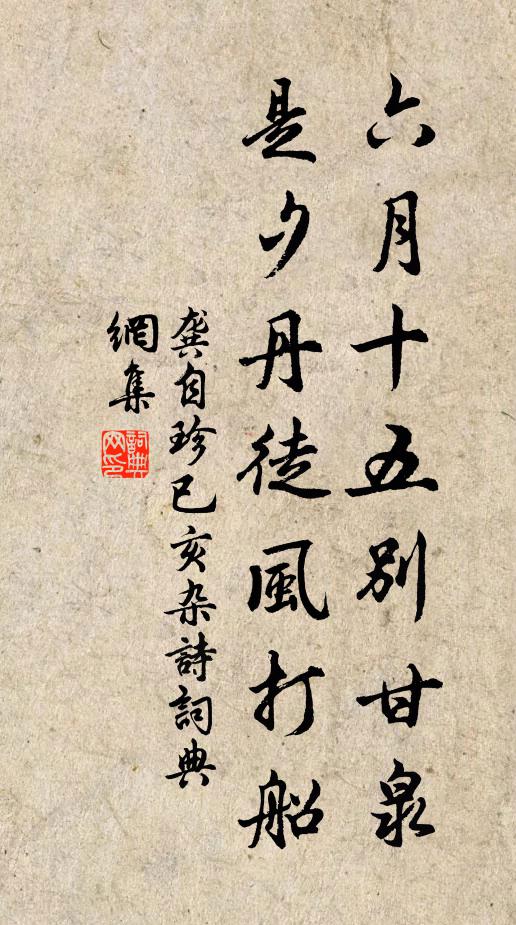 六月十五別甘泉
是夕丹徒風打船
龔自珍己亥杂詩詞典
網集
詞典
网印